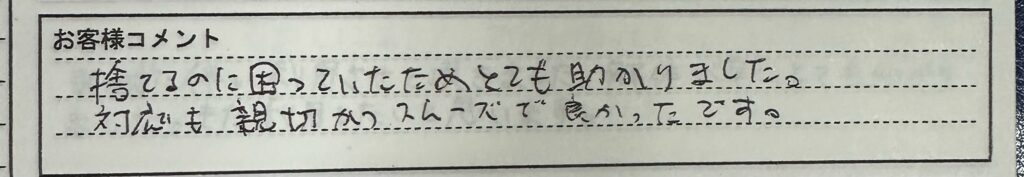 お客様コメント
捨てるのに困っていたためとても助かりました。
対応も親切かつスムーズで良かったです。